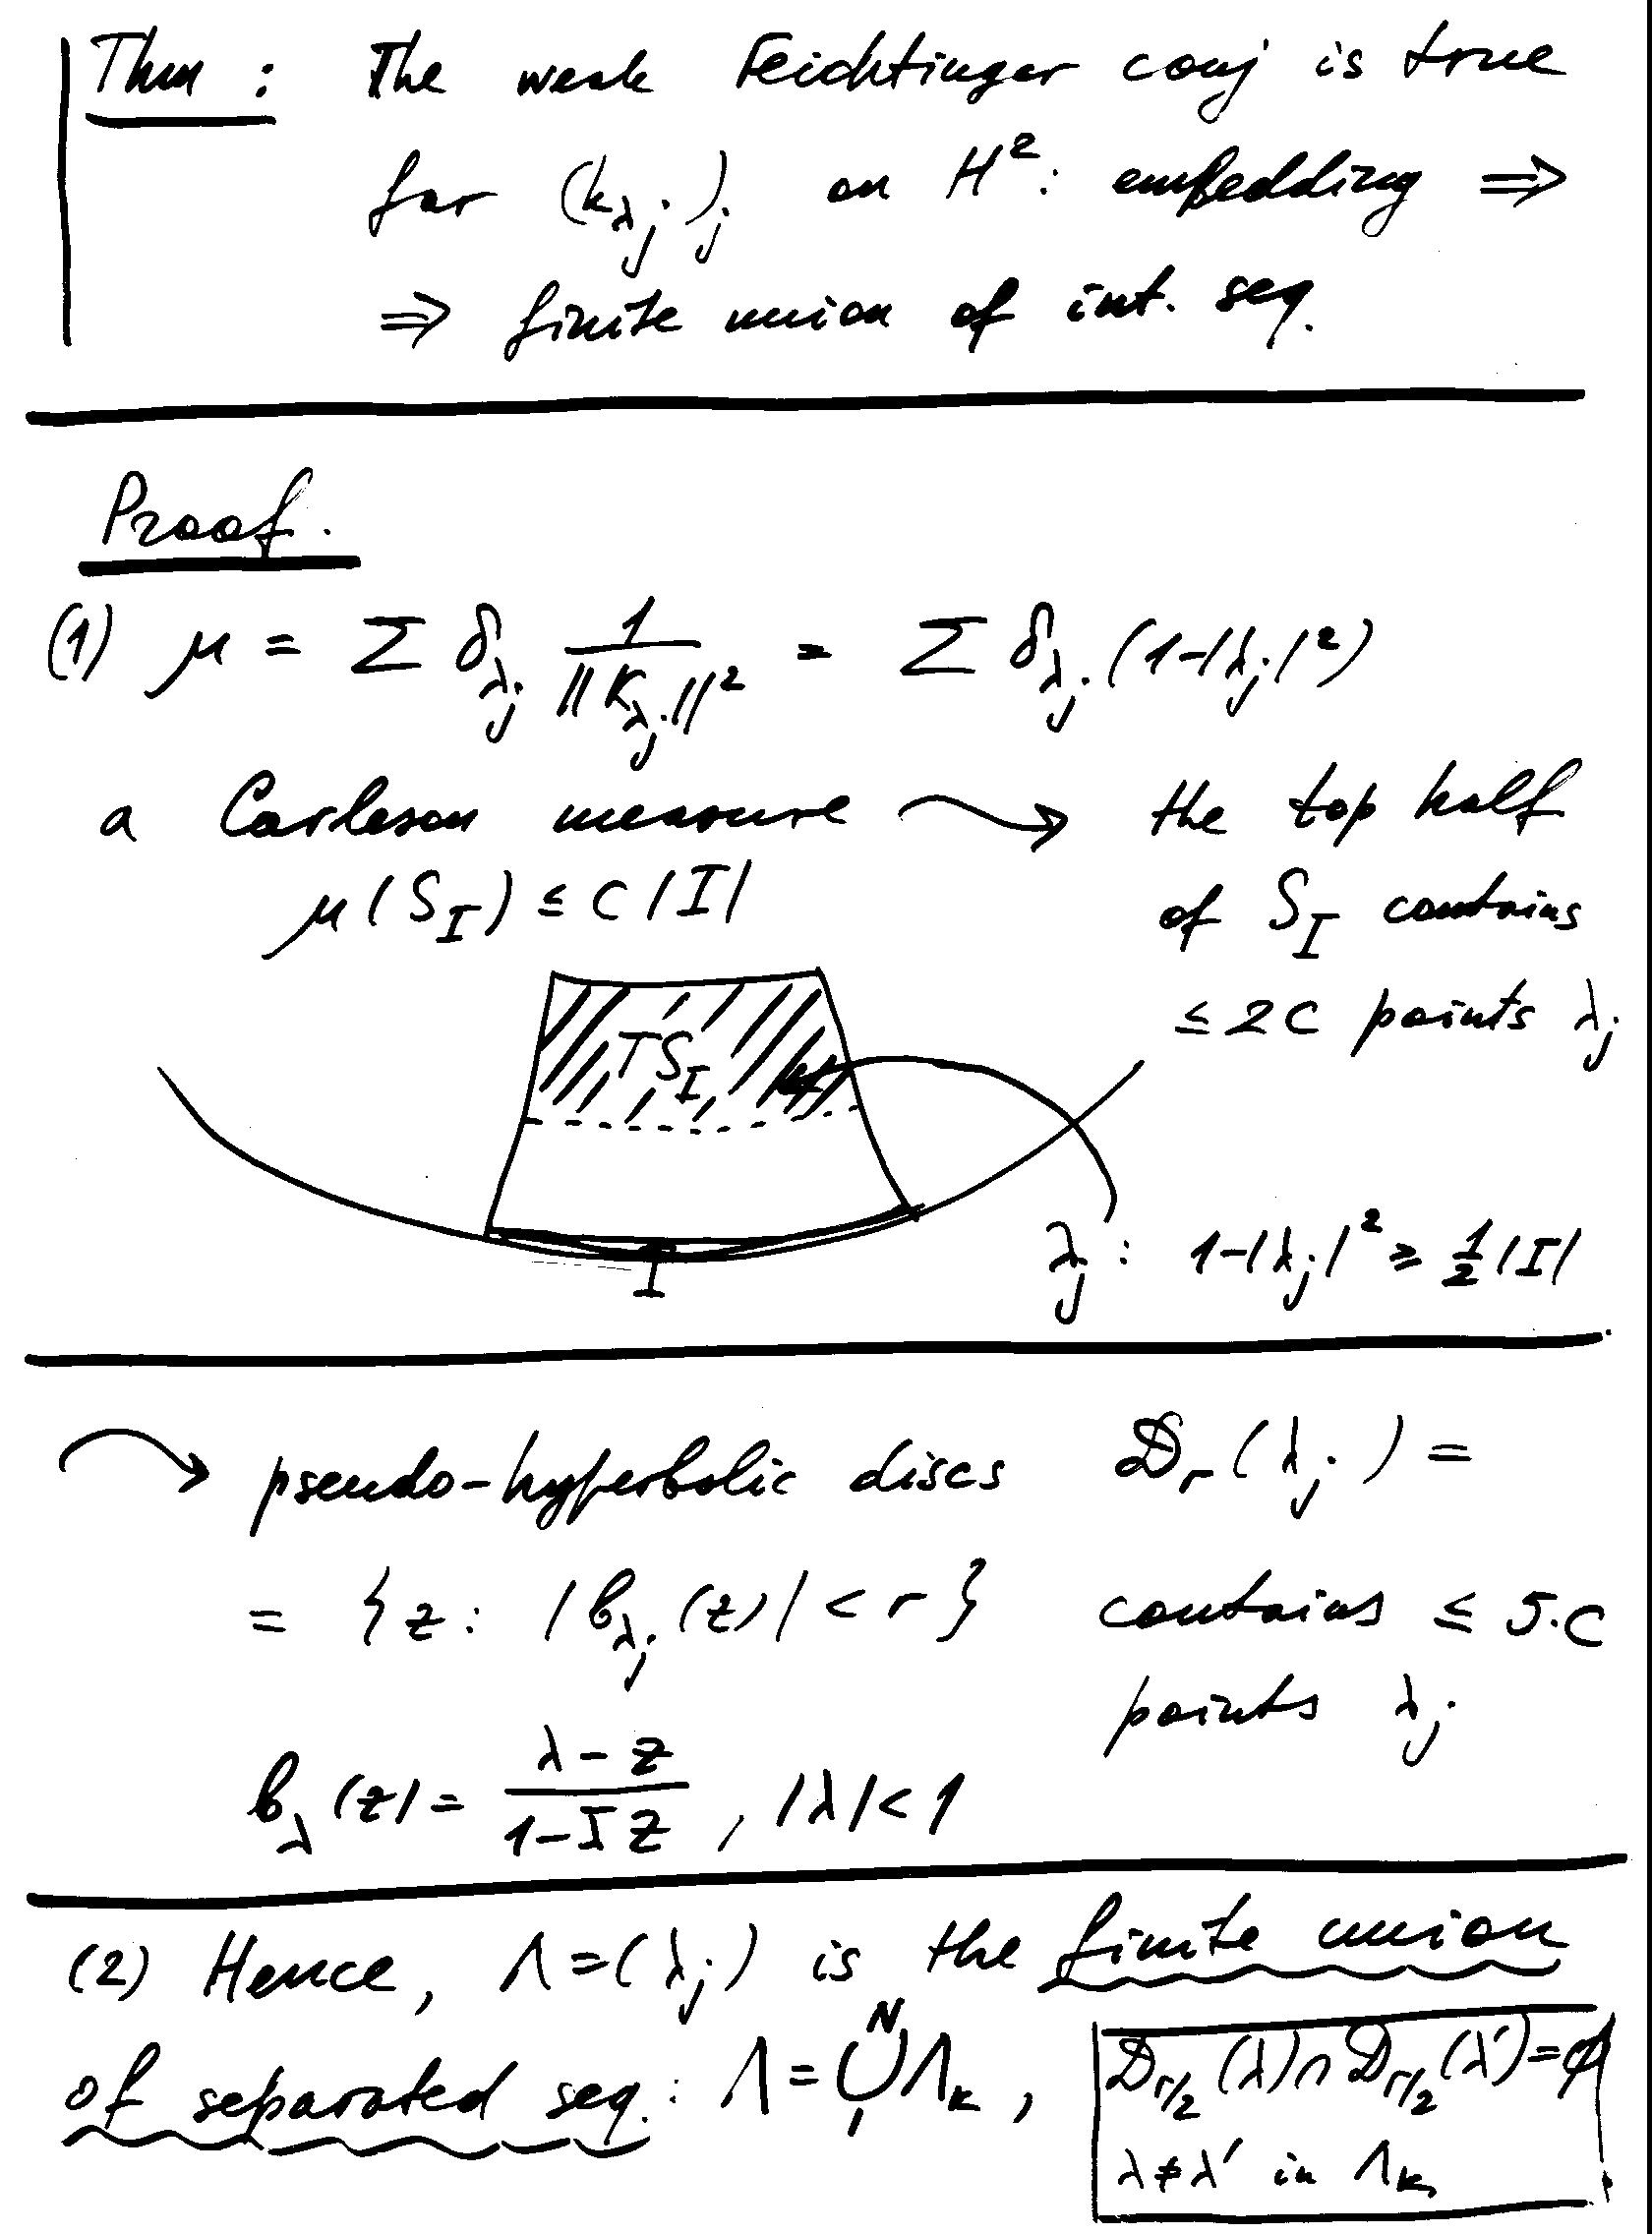 Thm : The weak Feichtinger conj is true
for (k_{λ_j})_j on H² : embedding ⇒
⇒ finite union of int. seq.
Proof.
(1) μ = Σ δ_{λ_j} 1/‖K_{λ_j}‖² = Σ δ_{λ_j} (1-|λ_j|²)
a Carleson measure ⤳ the top half
μ(S_I) ≤ C|I| of S_I contains
≤ 2C points λ_j
TS_I
I
λ_j : 1-|λ_j|² ≥ 1/2 |I|
⤳ pseudo-hyperbolic discs 𝔇_r(λ_j) =
= {z : |b_{λ_j}(z)| < r} contains ≤ 5·C
points λ_j
b_λ(z) = (λ - z)/(1 - λ̄ z) , |λ| < 1
(2) Hence, Λ = (λ_j) is the finite union
of separated seq. : Λ = ⋃_1^N Λ_k ,
𝔇_{r/2}(λ) ∩ 𝔇_{r/2}(λ') = ∅
λ ≠ λ' in Λ_k